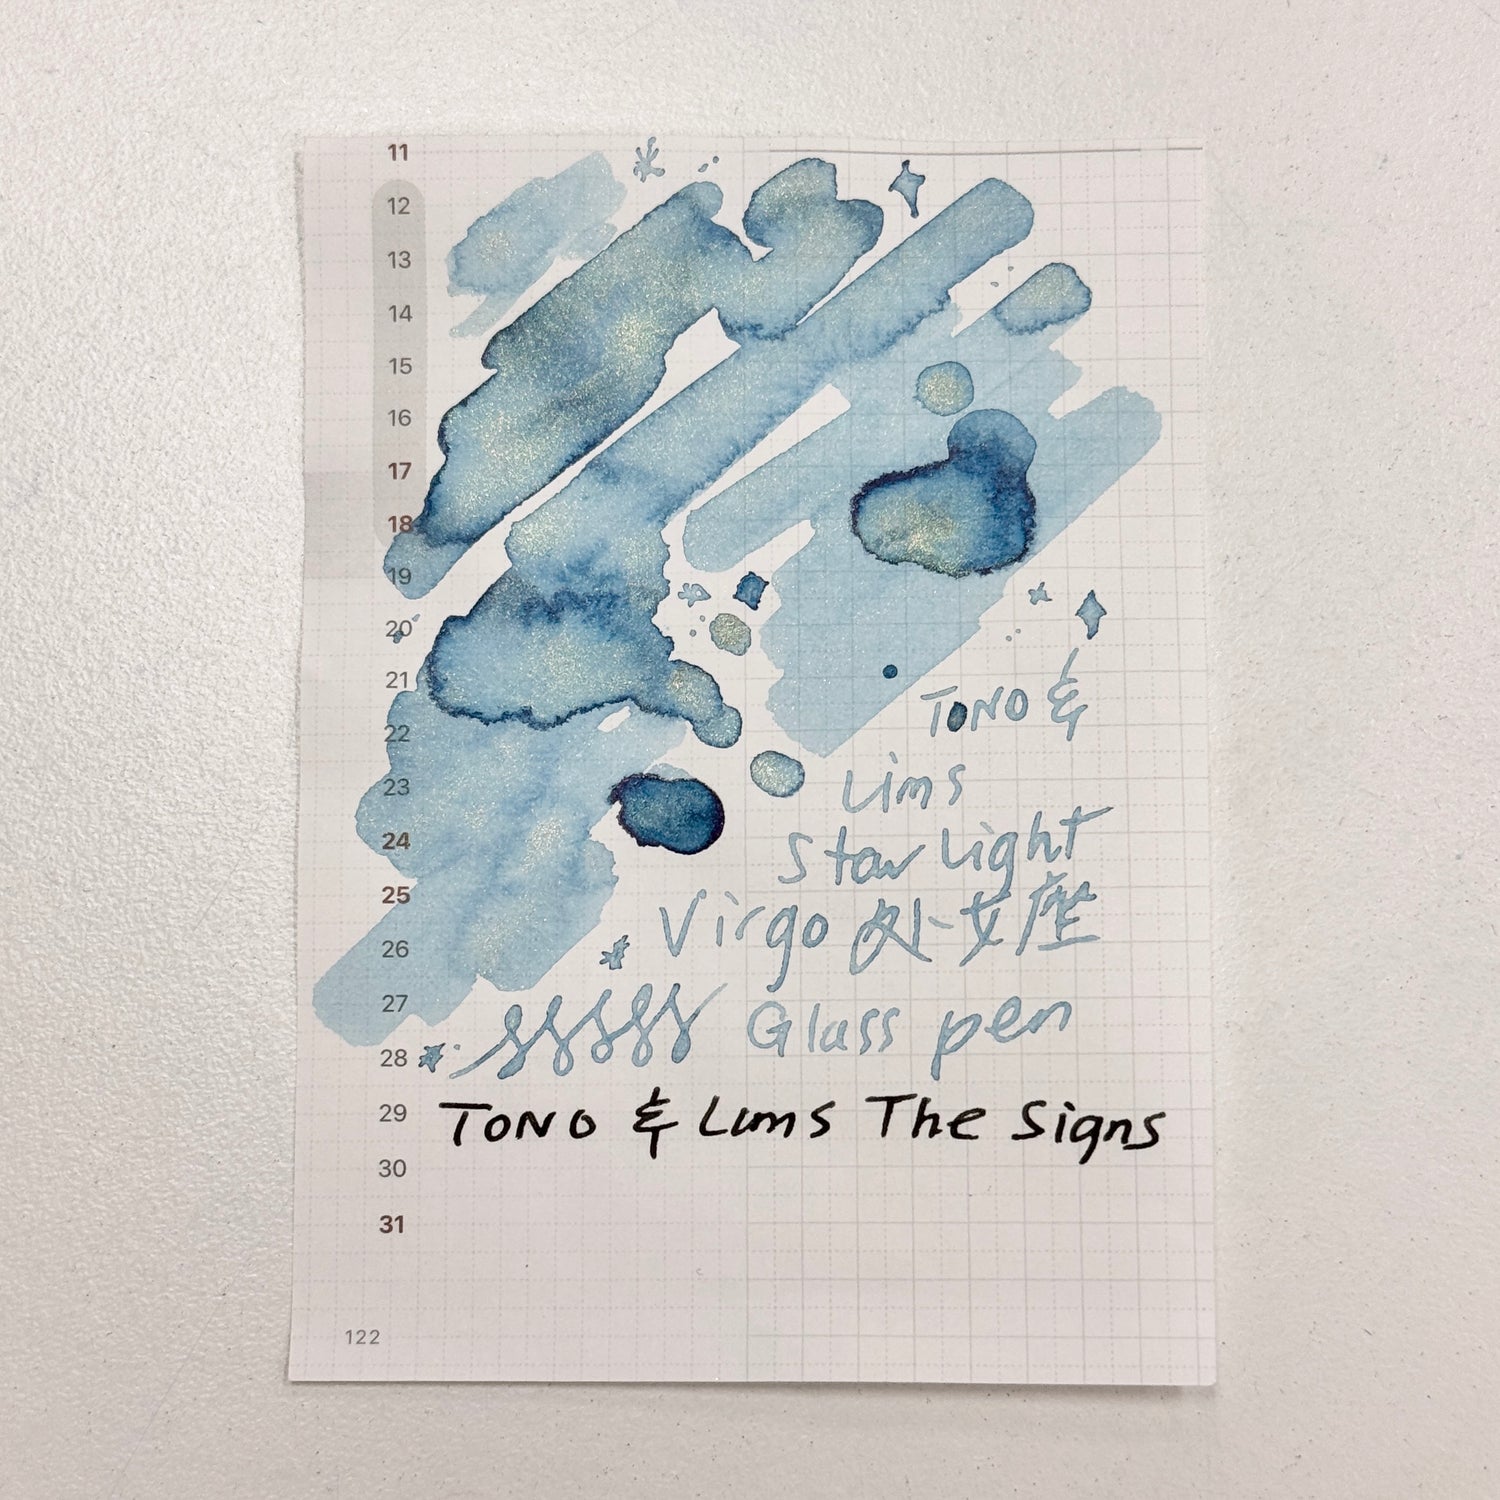 11
12
13
14
15
16
17
18
19
20
21
22
23
24
25
26
27
28
29
30
31
TONO &
Lims
Starlight
Virgo 处女座
Glass pen
TONO & Lims The Signs
122